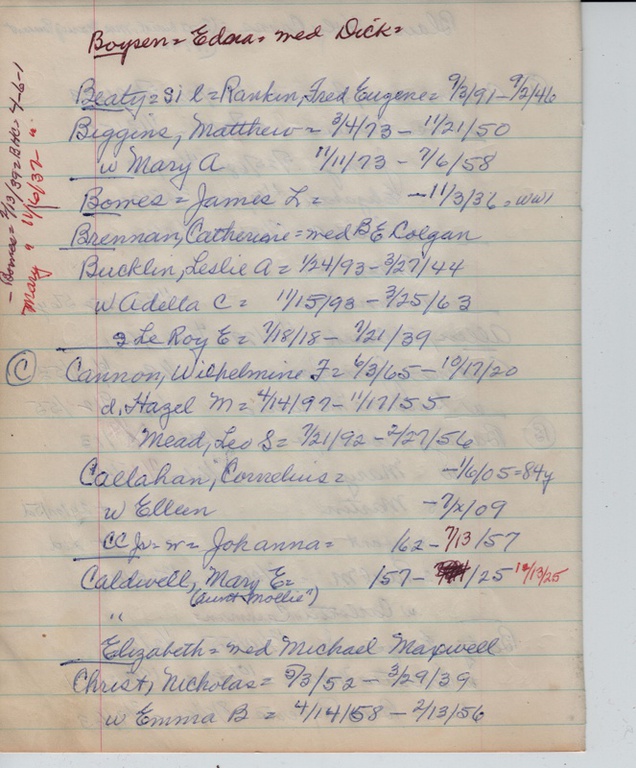 Boysen = Edna = med Dick =
- Bomes = 7/13/39 = BHC = 4-6-1
Mary " 11/6/37 "
Beaty = Sil = Rankin, Fred Eugene = 9/3/91 - 9/2/46
Biggins, Matthew = 3/4/73 - 11/21/50
w Mary A 11/11/73 - 7/6/58
Bomes = James L = - 11/3/36 = WW1
Brennan, Catherine = med B E Colgan
Bucklin, Leslie A = 1/24/93 - 3/27/44
w Adella C = 11/15/93 - 3/25/63
s Le Roy E = 7/18/18 - 7/21/39
C
Cannon, Wilhelmine F = 6/3/65 - 10/17/20
d, Hazel M = 4/14/97 - 11/17/55
Mead, Leo S = 7/21/92 - 2/27/56
Callahan, Cornelius = - 1/6/05 = 84y
w Ellen - 7/x/09
CC Jr = w = Johanna = 162 - 7/13/57
Caldwell, Mary E = /57 - /25 12/13/25
(aunt "mollie")
"
Elizabeth = med Michael Maxwell
Christ, Nicholas = 5/3/52 - 3/29/39
w Emma B = 4/14/58 - 2/13/56